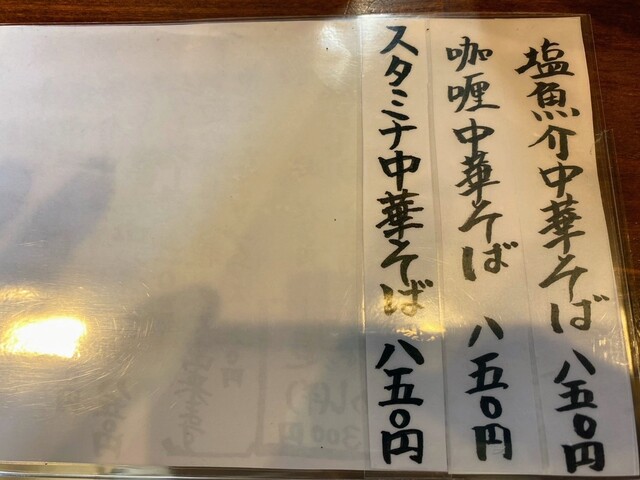 塩魚介中華そば 八五〇円
咖喱中華そば 八五〇円
スタミナ中華そば 八五〇円